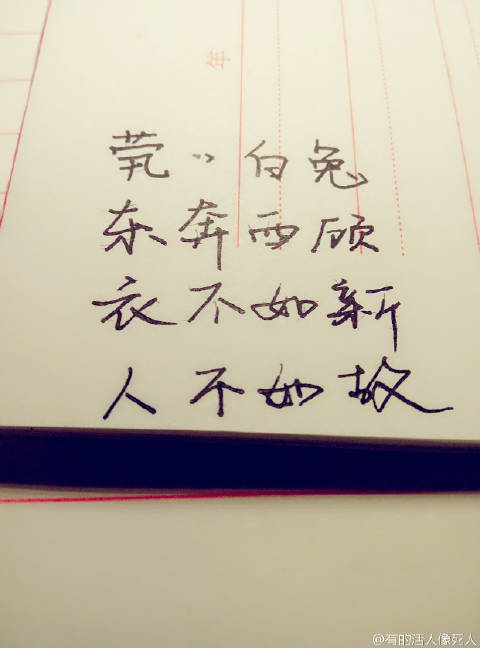 年
茕〃白兔
东奔西顾
衣不如新
人不如故
@有的活人像死人